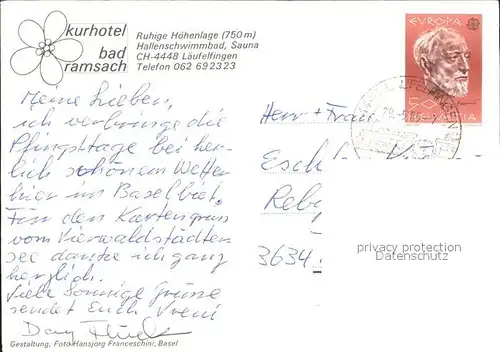 kurhotel
bad
ramsach
Ruhige Höhenlage (750 m)
Hallenschwimmbad, Sauna
CH-4448 Läufelfingen
Telefon 062 69 23 23
EUROPA
50
HELVETIA
Meine Lieben,
ich verbringe die
Pfingsttage bei herr-
lich schönem Wetter
hier im Baselbiet.
Für den Kartengruss
vom Vierwaldstädter
see danke ich ganz
herzlich.
Viele sonnige Grüsse
sendet Euch Vreni
Herr + Frau
Esch
Reb
3634
privacy protection
Datenschutz
Gestaltung, Foto Hansjörg Franceschini, Basel